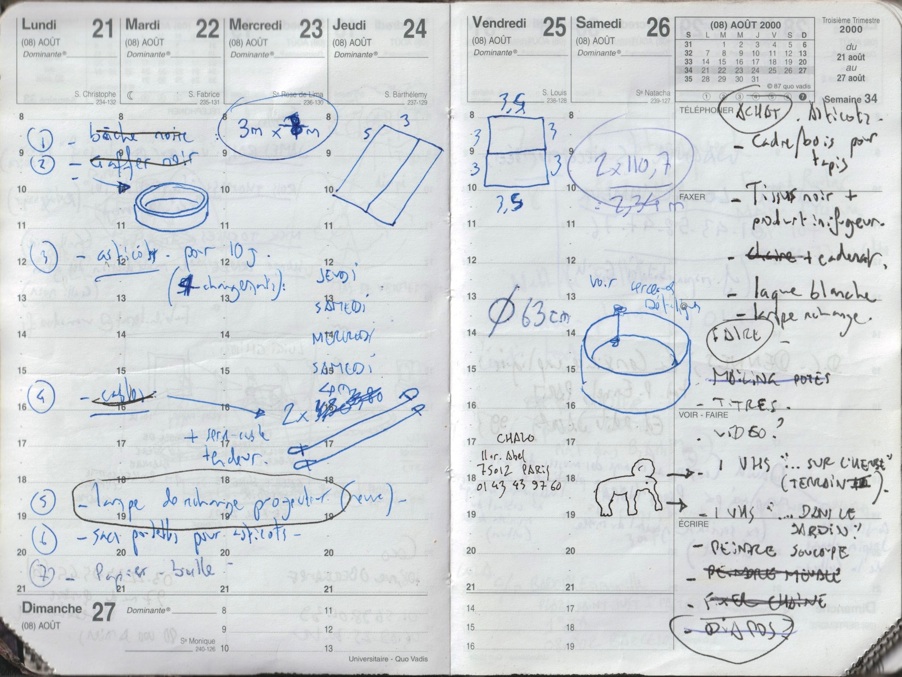 Lundi 21
(08) AOÛT
Dominante®
S. Christophe
234-132
Mardi 22
(08) AOÛT
Dominante®
S. Fabrice
235-131
Mercredi 23
(08) AOÛT
Dominante®
Ste Rose de Lima
236-130
Jeudi 24
(08) AOÛT
Dominante®
S. Barthélemy
237-129
8
9
10
11
12
13
14
15
16
17
18
19
20
21
① - bâche noire
② - gaffer noir
3m x m
3
5
③ - asticots pour 10 j.
(4 changements):
JEUDI
SAMEDI
MERCREDI
SAMEDI
④ - cables
2 x
+ serre-cable
tendeur.
⑤ - lampe de rechange projecteur (neuve) -
⑥ - sacs poubelles pour asticots -
⑦ - Papier-bulle -
Dimanche 27
(08) AOÛT
Dominante®
Ste Monique
240-126
8
9
10
11
12
13
Universitaire - Quo Vadis
Vendredi 25
(08) AOÛT
Dominante®
S. Louis
238-128
Samedi 26
(08) AOÛT
Dominante®
Ste Natacha
239-127
(08) AOÛT 2000
S L M M J V S D
31 1 2 3 4 5 6
32 7 8 9 10 11 12 13
33 14 15 16 17 18 19 20
34 21 22 23 24 25 26 27
35 28 29 30 31
© 87 quo vadis
Troisième Trimestre
2000
du
21 août
au
27 août
Semaine 34
3,5
3 3
3 3
3,5
2 x 110,7
= 2,34 m
voir cerceaux
Ø 63 cm
CHALO
11 r. Abel
75012 PARIS
01 43 43 97 60
TÉLÉPHONER
ACHAT. Asticots.
- Cadre/bois pour
tapis
FAXER
- Tissus noir +
produit inifugeur.
- chaire + cadenat.
- laque blanche
- lampe rechange.
FAIRE
- MAILING POTES
- TITRES.
VOIR - FAIRE
- VIDEO?
→ 1 VHS "... SUR L'HERBE"
(TERRAIN).
→ - 1 VHS ... DANS LE
JARDIN"
ÉCRIRE
- PEINDRE SOUCOUPE
- PEINDRE MEUBLE
- FIXER CHAINE
- DIAPOS